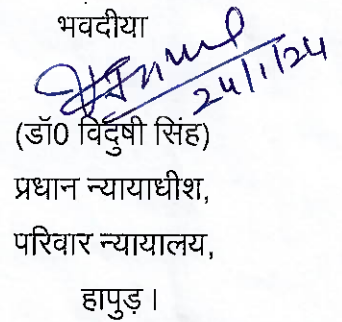 भवदीया
24/1/24
(डॉ0 विदुषी सिंह)
प्रधान न्यायाधीश,
परिवार न्यायालय,
हापुड़।